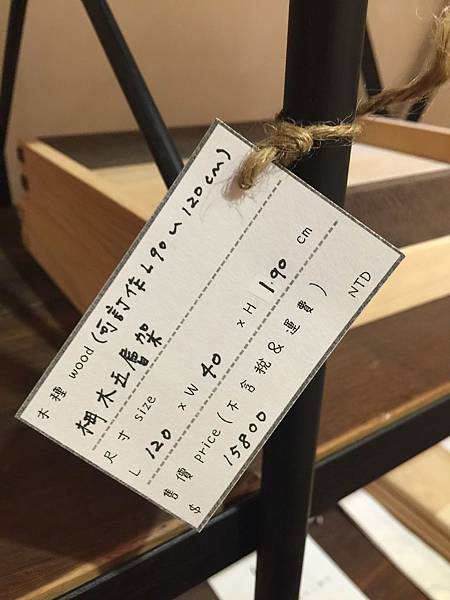 木種 wood (可訂作L90~120cm)
桐木五層架
尺寸 size
L 120 x W 40 x H 190 cm
售價 price(不含稅&運費)
$ 15800 NTD